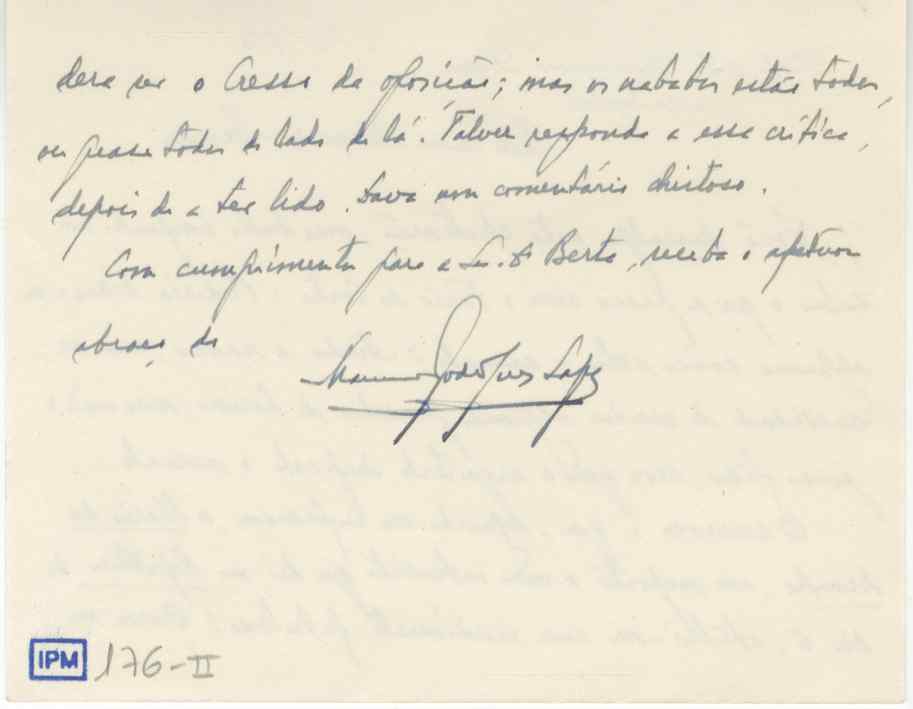 dera ser o Cresso da oposição; mas os nababos estão todos,
ou quase todos do lado de lá. Talvez responda a essa crítica,
depois de a ter lido. Dava um comentário chistoso.
Com cumprimentos para a Sr.ª D. Berta, receba o afectuoso
abraço de
Rodrigues Lapa
IPM 176-II